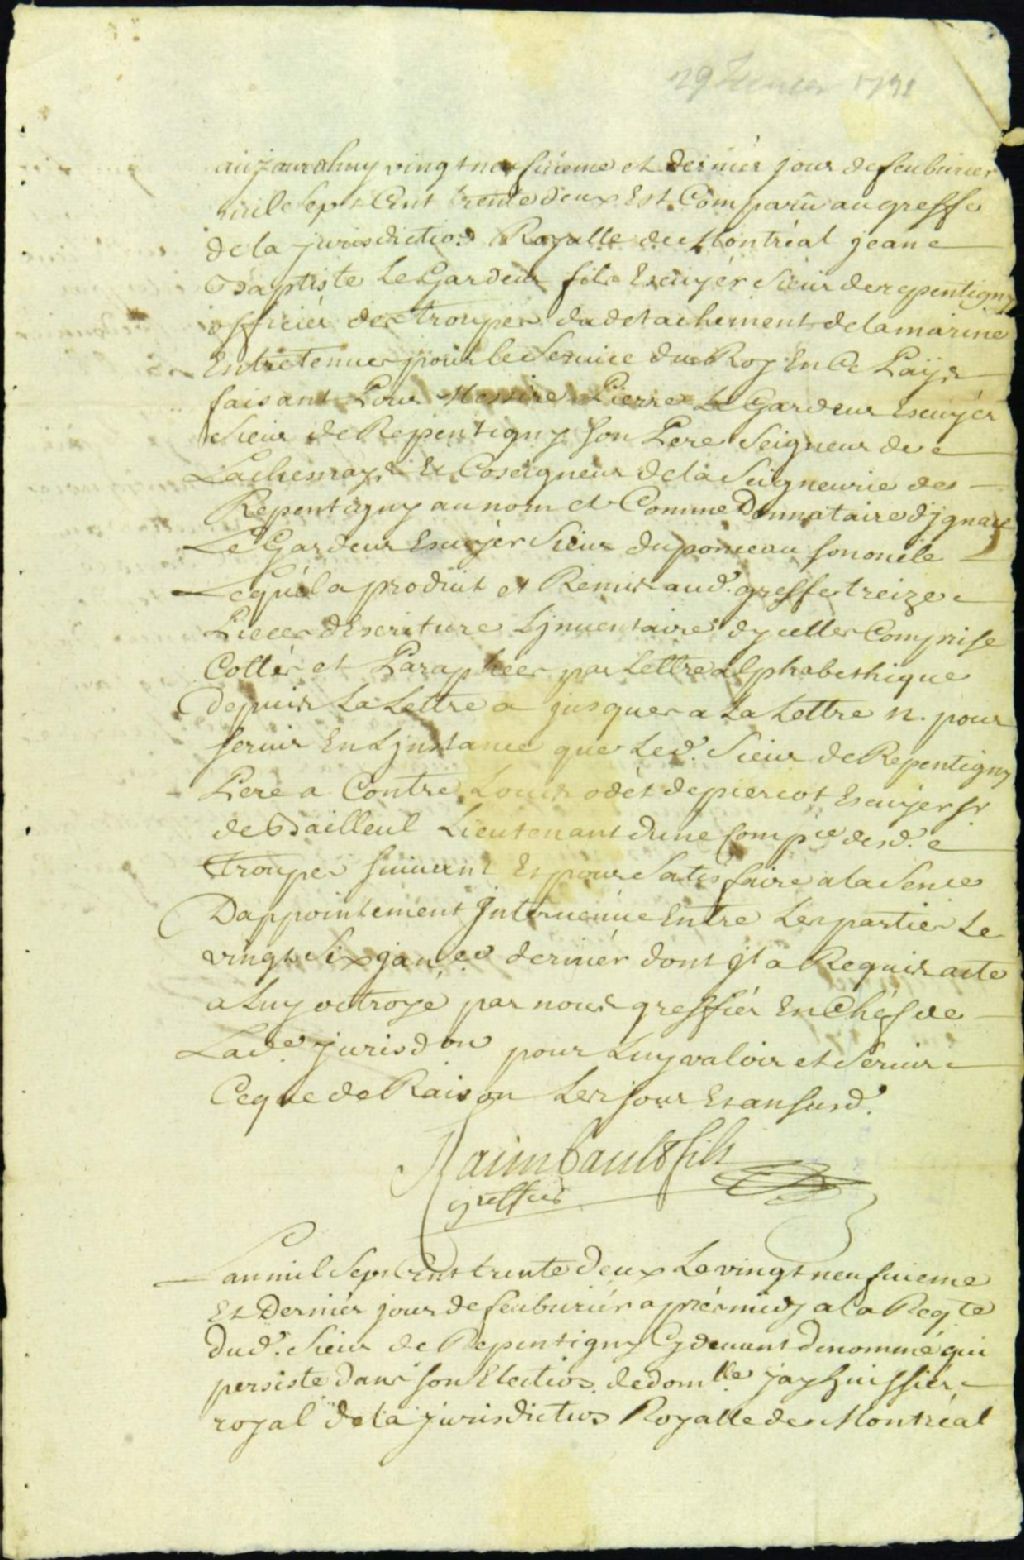 29 fevrier 173
aujourdhuy vingt neufuieme et dernier jour de feuburier
mil Sept Cent trente deux Est Comparû au greffe
de la jurisdiction Royalle de Montréal jean
Baptiste LeGardeur fils Escuyér Sieur de repentigny
officier des trouper du detachement de la marine
Entretenuer pour le Seruice du Roy En Ce Païs
faisant Pour Messire Pierre LeGardeur Escuyér
Sieur de Repentigny Son Pere Seigneur de
Lachesnaye Et Coseigneur de la Seigneurie de
Repentigny au nom et Comme Donnataire d'jgnace
LeGardeur Escuyer Sieur duponceau son oncle
Lequel a produit et Remis aud. greffe treize
Pieces dEscriture Ljnuentaire dycelles Comprise
Cottés et Paraphées par Lettre alphabethique
Depuis La Lettre a jusques a La Lettre n. pour
seruir En Ljnstance que Led. Sieur de Repentigny
Pere a Contre Louis odet de piercot Escuyer Sr
de Bailleul Lieutenant dune Compie desd.
trouper suiuant Et pour Satisfaire a la Sence
Dappointement Jnteruenüe Entre Les partier Le
vingt Six janer dernier dont jl a Requis acte
a Luy octroyé par nous greffiér En Chef de
Lade. jurisdon pour Luy valoir et Seruir
Ce que de Raison Les jour Et an susd.
Raimbault fils
greffier
Lan mil Sept Cent trente deux Le vingt neufuieme
Et Dernier jour de feuburiér aprés midy a La Reqte
Dud. Sieur de Repentigny Cy deuant Denommé qui
persiste dans son Election de domlle jay huissier
royal de la jurisdiction Royalle de Montréal